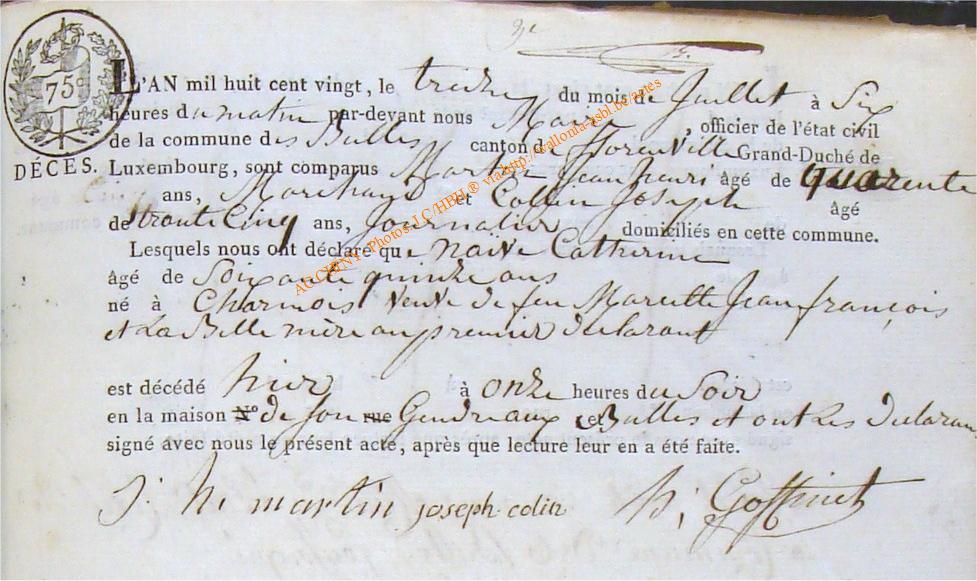 75c
DÉCES.
L'AN mil huit cent vingt, le treize du mois de Juillet à Six
heures du matin par-devant nous Maire, officier de l'état civil
de la commune des Bulles canton de florenville Grand-Duché de
Luxembourg, sont comparus Martin Jean henri âgé de quarente
ans, Marchand et Collin Joseph âgé
de trante Cinq ans, Journalier domiciliés en cette commune.
Lesquels nous ont déclaré que naive Catherine
âgé de Soixante quinze ans
né à Charmois veuve de feu Marette Jean françois
et La Belle mère au premier declarant
est décédé hier à onze heures du Soir
en la maison N° de son rue Gendre aux Bulles et ont Les declarans
signé avec nous le présent acte, après que lecture leur en a été faite.
J. h. martin joseph colin h, Goffinet
AUCHENT Photos J.C/HBH ® via http://wallonia-asbl.be/actes